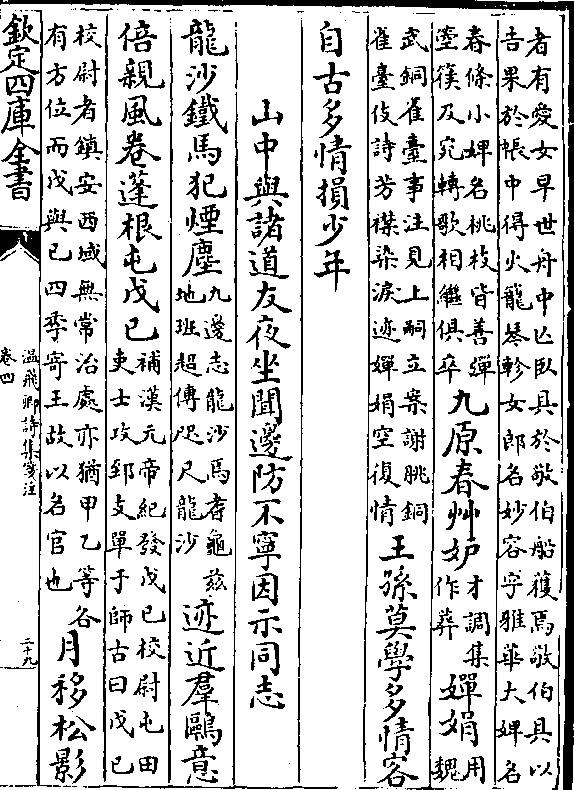 者有愛女早世舟中亡臥具於敬伯船獲焉敬伯具以
告果於帳中得火龍琴軫女郎名妙容字雅華大婢名
春條小婢名桃枝皆善彈
箜篌及宛轉歌相繼俱卒
九原春艸妒
才調集
作葬
嬋娟
用
魏
武銅雀臺事注見上嗣立案謝眺銅
雀臺伎詩芳襟染淚迹嬋娟空復情
王孫莫學多情客
自古多情損少年
山中與諸道友夜坐聞邊防不寧因示同志
龍沙鐵馬犯煙塵
九邊志龍沙馬耆龜茲
地班超傳咫尺龍沙
迹近羣鷗意
倍親風卷蓬根屯戊己
補漢元帝紀發戊己校尉屯田
吏士攻郅支單于師古曰戊己
校尉者鎮安西域無常治處亦猶甲乙等各
有方位而戊與己四季寄王故以名官也
月移松影
欽定四庫全書
溫飛卿詩集箋注
卷四
二十九